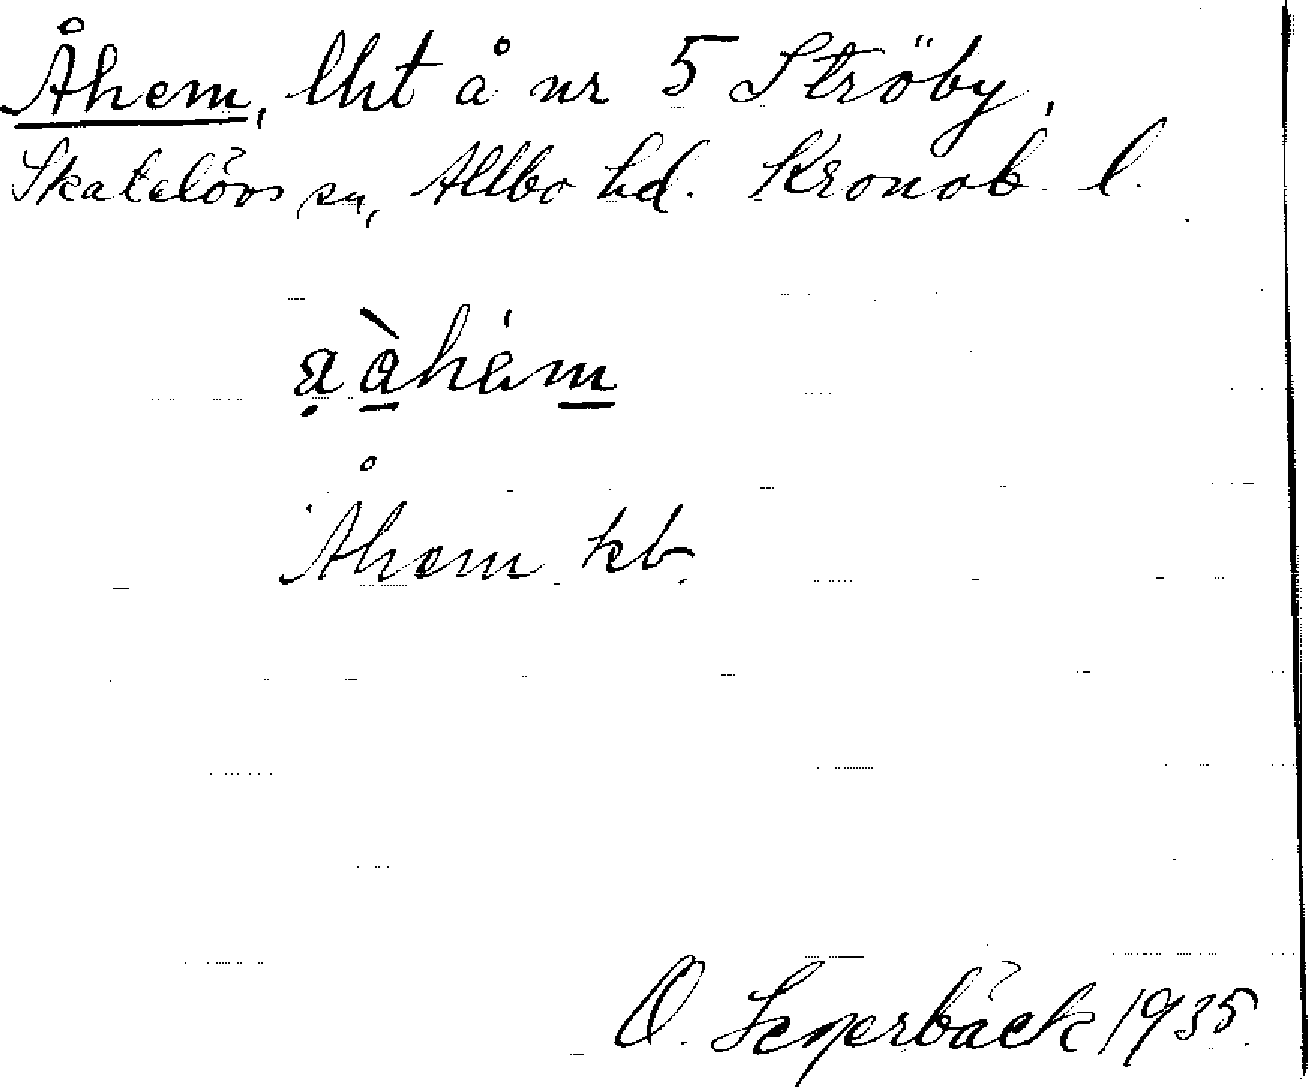 Åhem, lht å nr 5 Ströby,
Skatelövs sn, Allbo hd. Kronob. l.
a̤ àhém
Åhem kb.
O. Segerbäck 1935.